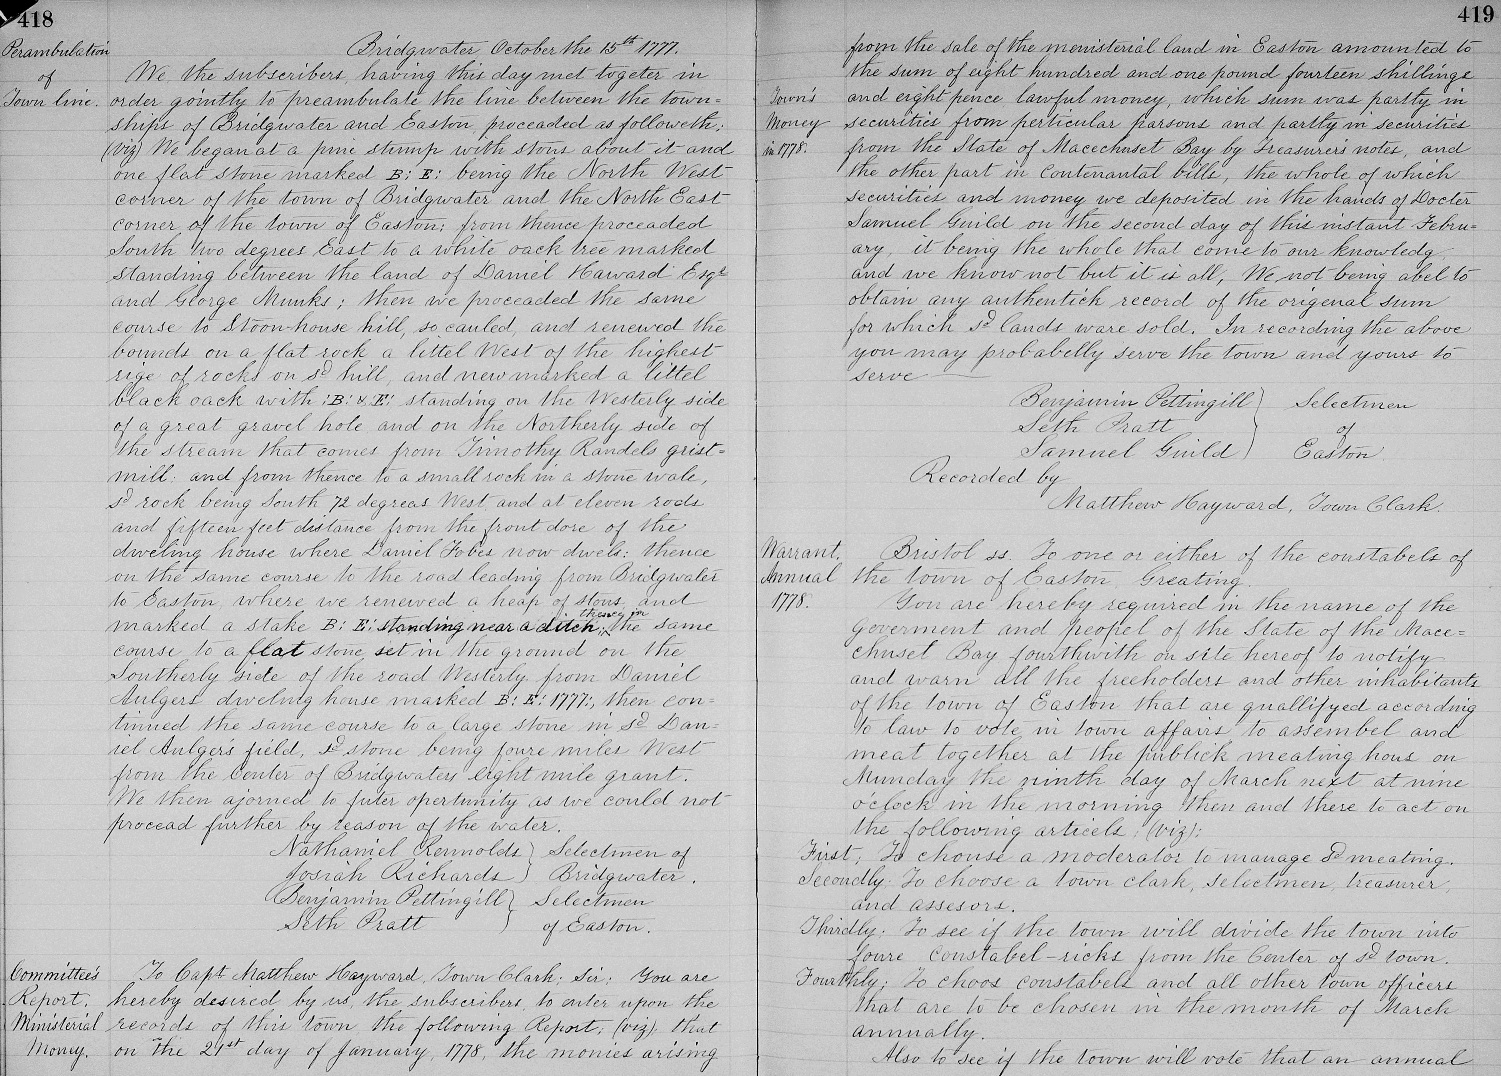 418
Perambulation
of
Town line.
Bridgwater October the 15th 1777.
We the subscribers, having this day met togeter in
order gointly to preambulate the line between the town=
ships of Bridgwater and Easton, proceaded as followeth;
(viz) We began at a pine stump with stons about it and
one flat stone marked B: E: being the North West
corner of the town of Bridgwater and the North East
corner of the town of Easton; from thence proceaded
South two degrees East to a white oack tree marked
standing between the land of Daniel Haward Esqr
and George Munks; then we proceaded the same
course to Stoon-house hill, so cauled, and renewed the
bounds on a flat rock a littel West of the highest
rige of rocks on sd hill, and new marked a littel
black oack with :B: & E: standing on the Westerly side
of a great gravel hole and on the Northerly side of
the stream that comes from Timothy Randels grist=
mill: and from thence to a small rock in a stone wale,
sd rock being South 72 degreas West, and at eleven rods
and fifteen feet distance from the front dore of the
dweling house where Daniel Fobes now dwels; thence
on the same course to the road leading from Bridgwater
to Easton, where we renewed a heap of stons, and
marked a stake B: E: standing near a ditch; thence in the same
course to a flat stone set in the ground on the
Southerly side of the road Westerly from Daniel
Aulgers dweling house marked B: E: 1777:, then con=
tinued the same course to a large stone in sd Dan=
iel Aulger's field, sd stone being foure miles West
from the Center of Bridgwaters eight mile grant.
We then ajorned to futer opertunity as we could not
procead further by reason of the water.
Nathaniel Reynolds } Selectmen of
Josiah Richards } Bridgwater.
Benjamin Pettingill } Selectmen
Seth Pratt } of Easton.
Committee's
Report.
Ministerial
Money.
To Capt Matthew Hayward, Town Clark; Sir; You are
hereby desired by us, the subscribers, to enter upon the
records of this town the following Report; (viz) that
on the 21st day of January, 1778, the monies arising
419
from the sale of the menisterial land in Easton amounted to
the sum of eight hundred and one pound fourteen shillings
Town's
Money
in 1778.
and eight pence lawful money, which sum was partly in
securities from perticular parsons and partly in securities
from the State of Macechuset Bay by treasurer's notes, and
the other part in Contenantal bills, the whole of which
securities and money we deposited in the hands of Docter
Samuel Guild on the second day of this instant Febru=
ary, it being the whole that come to our knowledg,
and we know not but it is all, We not being abel to
obtain any authentick record of the origenal sum
for which sd lands ware sold. In recording the above
you may probabelly serve the town and yours to
serve
Benjamin Pettingill } Selectmen
Seth Pratt } of
Samuel Guild } Easton.
Recorded by
Matthew Hayward, Town Clark.
Warrant.
Annual
1778.
Bristol ss. To one or either of the constabels of
the town of Easton, Greating.
You are hereby required in the name of the
Goverment and peopel of the State of the Mace=
chuset Bay fourthwith on site hereof to notify
and warn all the freeholders and other inhabitants
of the town of Easton that are quallifyed according
to law to vote in town affairs to assembel and
meat together at the publick meating hous on
Munday the ninth day of March next at nine
o'clock in the morning then and there to act on
the following articels; (viz):
First; To chouse a moderator to manage sd meating.
Secondly; To choose a town clark, selectmen, treasurer,
and assesors.
Thirdly; To see if the town will divide the town into
foure constabel-ricks from the Center of sd town.
Fourthly; To choos constabels and all other town officers
that are to be chosen in the month of March
annually.
Also to see if the town will vote that an annual